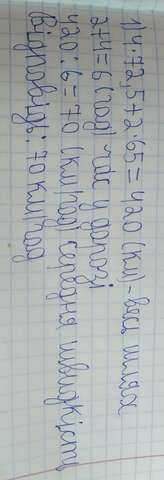 1) 4·72,5+2·65=420 (км) - весь шлях
2+4=6 (год) час у дорозі
420:6=70 (км/год) середня швидкість
Відповідь: 70 км/год